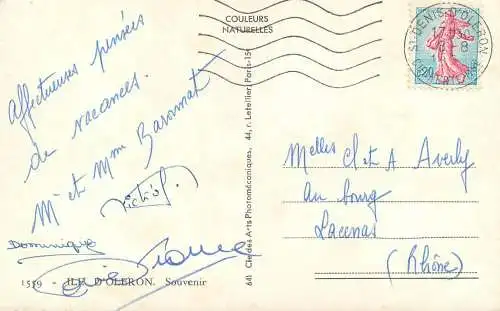 COULEURS
NATURELLES
ST DENIS-D'OLERON
17
8
Affectueuses pensées
de vacances.
Mr et Mme Baromat
Dominique
1559 - ILE D'OLERON. Souvenir
641 Cie des Arts Photomécaniques, 44, r. Letellier, Paris-15e
Melles C et A Averly
au bourg
Lacenas
(Rhône)